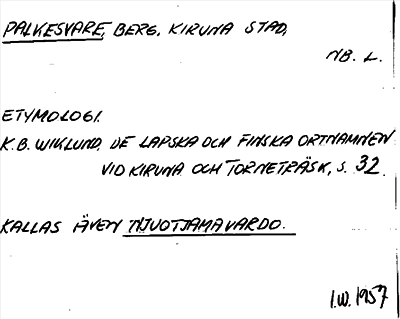 PALKESVARE, BERG, KIRUNA STAD,
NB. L.
ETYMOLOGI.
K.B. WIKLUND, DE LAPSKA OCH FINSKA ORTNAMNEN
VID KIRUNA OCH TORNETRÄSK, S. 32.
KALLAS ÄVEN TJUOTJAMAVARDO.
I.W. 1957